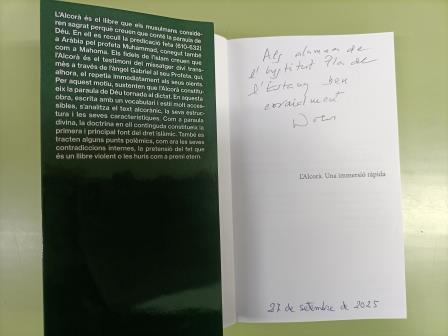 L'Alcorà és el llibre que els musulmans conside-
ren sagrat perquè creuen que conté la paraula de
Déu. En ell es recull la predicació feta (610-632)
a Aràbia pel profeta Muhammad, conegut també
com a Mahoma. Els fidels de l'islam creuen que
l'Alcorà és el testimoni del missatge diví trans-
mès a través de l'àngel Gabriel al seu Profeta, qui,
alhora, el repetia immediatament als seus oients.
Per aquest motiu, sustenten que l'Alcorà constitu-
eix la paraula de Déu tornada al dictat. En aquesta
obra, escrita amb un vocabulari i estil molt acces-
sibles, s'analitza el text alcorànic, la seva estruc-
tura i les seves característiques. Com a paraula
divina, la doctrina en ell continguda constitueix la
primera i principal font del dret islàmic. També es
tracten alguns punts polèmics, com ara les seves
contradiccions internes, la pretensió del fet que
és un llibre violent o les hurís com a premi etern.
Als alumnes de
l'Institut Pla de
l'Estany ben
cordialment
L'Alcorà. Una immersió ràpida
27 de setembre de 2025